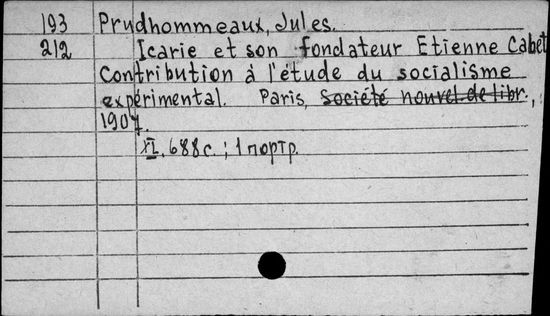 193 Prudhommeaux, Jules.
212 Icarie et son fondateur Etienne Cabet
Contribution à l'étude du socialisme
expérimental. Paris, Société nouvel. de libr.,
1907.
XL, 688 с. ; 1 портр.